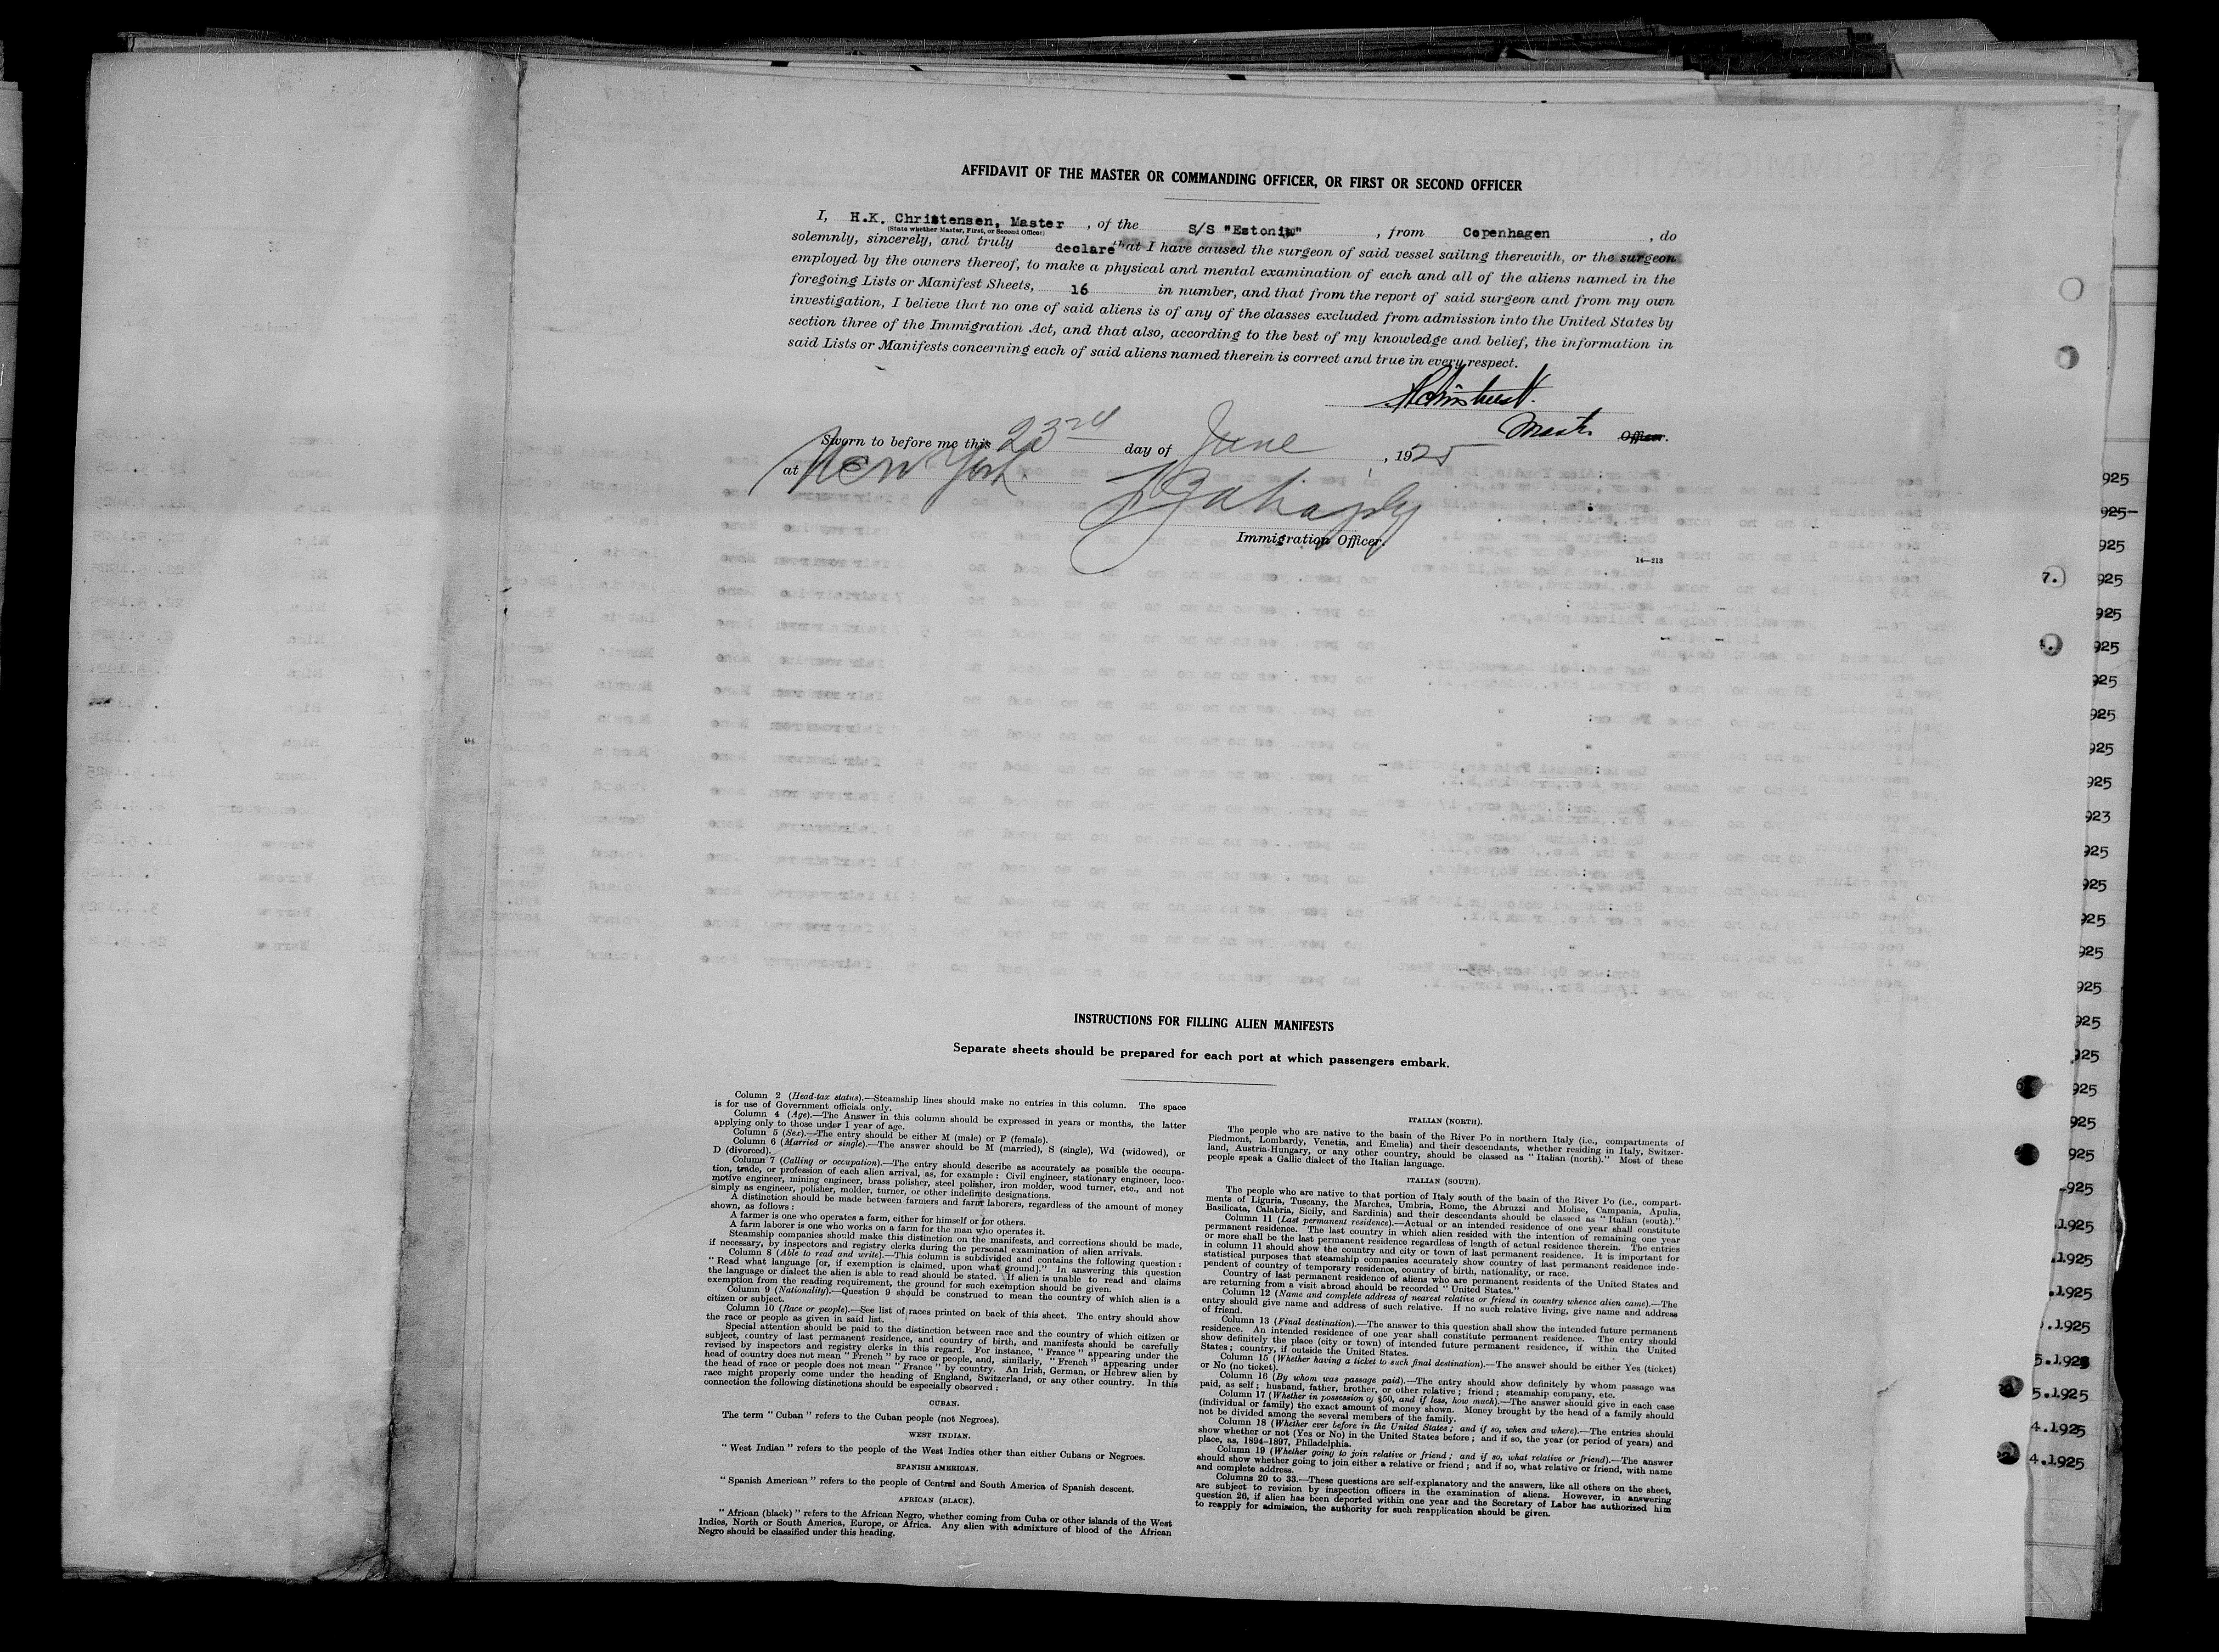 AFFIDAVIT OF THE MASTER OR COMMANDING OFFICER, OR FIRST OR SECOND OFFICER
I, H.K. Christensen, Master , of the S/S "Estonia" , from Copenhagen , do
(State whether Master, First, or Second Officer)
solemnly, sincerely, and truly declare that I have caused the surgeon of said vessel sailing therewith, or the surgeon
employed by the owners thereof, to make a physical and mental examination of each and all of the aliens named in the
foregoing Lists or Manifest Sheets, 16 in number, and that from the report of said surgeon and from my own
investigation, I believe that no one of said aliens is of any of the classes excluded from admission into the United States by
section three of the Immigration Act, and that also, according to the best of my knowledge and belief, the information in
said Lists or Manifests concerning each of said aliens named therein is correct and true in every respect.
Master Officer.
Sworn to before me this 23rd day of June , 1925
at New York.
Immigration Officer.
14—213
INSTRUCTIONS FOR FILLING ALIEN MANIFESTS
Separate sheets should be prepared for each port at which passengers embark.
Column 2 (Head-tax status).—Steamship lines should make no entries in this column. The space
is for use of Government officials only.
Column 4 (Age).—The Answer in this column should be expressed in years or months, the latter
applying only to those under 1 year of age.
Column 5 (Sex).—The entry should be either M (male) or F (female).
Column 6 (Married or single).—The answer should be M (married), S (single), Wd (widowed), or
D (divorced).
Column 7 (Calling or occupation).—The entry should describe as accurately as possible the occupa-
tion, trade, or profession of each alien arrival, as, for example: Civil engineer, stationary engineer, loco-
motive engineer, mining engineer, brass polisher, steel polisher, iron molder, wood turner, etc., and not
simply as engineer, polisher, molder, turner, or other indefinite designations.
A distinction should be made between farmers and farm laborers, regardless of the amount of money
shown, as follows:
A farmer is one who operates a farm, either for himself or for others.
A farm laborer is one who works on a farm for the man who operates it.
Steamship companies should make this distinction on the manifests, and corrections should be made,
if necessary, by inspectors and registry clerks during the personal examination of alien arrivals.
Column 8 (Able to read and write).—This column is subdivided and contains the following question:
"Read what language [or, if exemption is claimed, upon what ground]." In answering this question
the language or dialect the alien is able to read should be stated. If alien is unable to read and claims
exemption from the reading requirement, the ground for such exemption should be given.
Column 9 (Nationality).—Question 9 should be construed to mean the country of which alien is a
citizen or subject.
Column 10 (Race or people).—See list of races printed on back of this sheet. The entry should show
the race or people as given in said list.
Special attention should be paid to the distinction between race and the country of which citizen or
subject, country of last permanent residence, and country of birth, and manifests should be carefully
revised by inspectors and registry clerks in this regard. For instance, "France" appearing under the
head of country does not mean "French" by race or people, and, similarly, "French" appearing under
the head of race or people does not mean "France" by country. An Irish, German, or Hebrew alien by
race might properly come under the heading of England, Switzerland, or any other country. In this
connection the following distinctions should be especially observed:
CUBAN.
The term "Cuban" refers to the Cuban people (not Negroes).
WEST INDIAN.
"West Indian" refers to the people of the West Indies other than either Cubans or Negroes.
SPANISH AMERICAN.
"Spanish American" refers to the people of Central and South America of Spanish descent.
AFRICAN (BLACK).
"African (black)" refers to the African Negro, whether coming from Cuba or other islands of the West
Indies, North or South America, Europe, or Africa. Any alien with admixture of blood of the African
Negro should be classified under this heading.
ITALIAN (NORTH).
The people who are native to the basin of the River Po in northern Italy (i.e., compartments of
Piedmont, Lombardy, Venetia, and Emelia) and their descendants, whether residing in Italy, Switzer-
land, Austria-Hungary, or any other country, should be classed as "Italian (north)." Most of these
people speak a Gallic dialect of the Italian language.
ITALIAN (SOUTH).
The people who are native to that portion of Italy south of the basin of the River Po (i.e., compart-
ments of Liguria, Tuscany, the Marches, Umbria, Rome, the Abruzzi and Molise, Campania, Apulia,
Basilicata, Calabria, Sicily, and Sardinia) and their descendants should be classed as "Italian (south)."
Column 11 (Last permanent residence).—Actual or an intended residence of one year shall constitute
permanent residence. The last country in which alien resided with the intention of remaining one year
or more shall be the last permanent residence regardless of length of actual residence therein. The entries
in column 11 should show the country and city or town of last permanent residence. It is important for
statistical purposes that steamship companies accurately show country of last permanent residence inde-
pendent of country of temporary residence, country of birth, nationality, or race.
Country of last permanent residence of aliens who are permanent residents of the United States and
are returning from a visit abroad should be recorded "United States."
Column 12 (Name and complete address of nearest relative or friend in country whence alien came).—The
entry should give name and address of such relative. If no such relative living, give name and address
of friend.
Column 13 (Final destination).—The answer to this question shall show the intended future permanent
residence. An intended residence of one year shall constitute permanent residence. The entry should
show definitely the place (city or town) of intended future permanent residence, if within the United
States; country, if outside the United States.
Column 15 (Whether having a ticket to such final destination).—The answer should be either Yes (ticket)
or No (no ticket).
Column 16 (By whom was passage paid).—The entry should show definitely by whom passage was
paid, as self; husband, father, brother, or other relative; friend; steamship company, etc.
Column 17 (Whether in possession of $50, and if less, how much).—The answer should give in each case
(individual or family) the exact amount of money shown. Money brought by the head of a family should
not be divided among the several members of the family.
Column 18 (Whether ever before in the United States; and if so, when and where).—The entries should
show whether or not (Yes or No) in the United States before; and if so, the year (or period of years) and
place, as, 1894–1897, Philadelphia.
Column 19 (Whether going to join relative or friend; and if so, what relative or friend).—The answer
should show whether going to join either a relative or friend; and if so, what relative or friend, with name
and complete address.
Columns 20 to 33.—These questions are self-explanatory and the answers, like all others on the sheet,
are subject to revision by inspection officers in the examination of aliens. However, in answering
question 26, if alien has been deported within one year and the Secretary of Labor has authorized him
to reapply for admission, the authority for such reapplication should be given.
925
925
925
7. 925
925
925
925
925
925
925
923
925
925
925
925
925
925
925
925
925
925
925
.1925
.1925
.1925
.1925
5.1925
5.1925
4.1925
4.1925